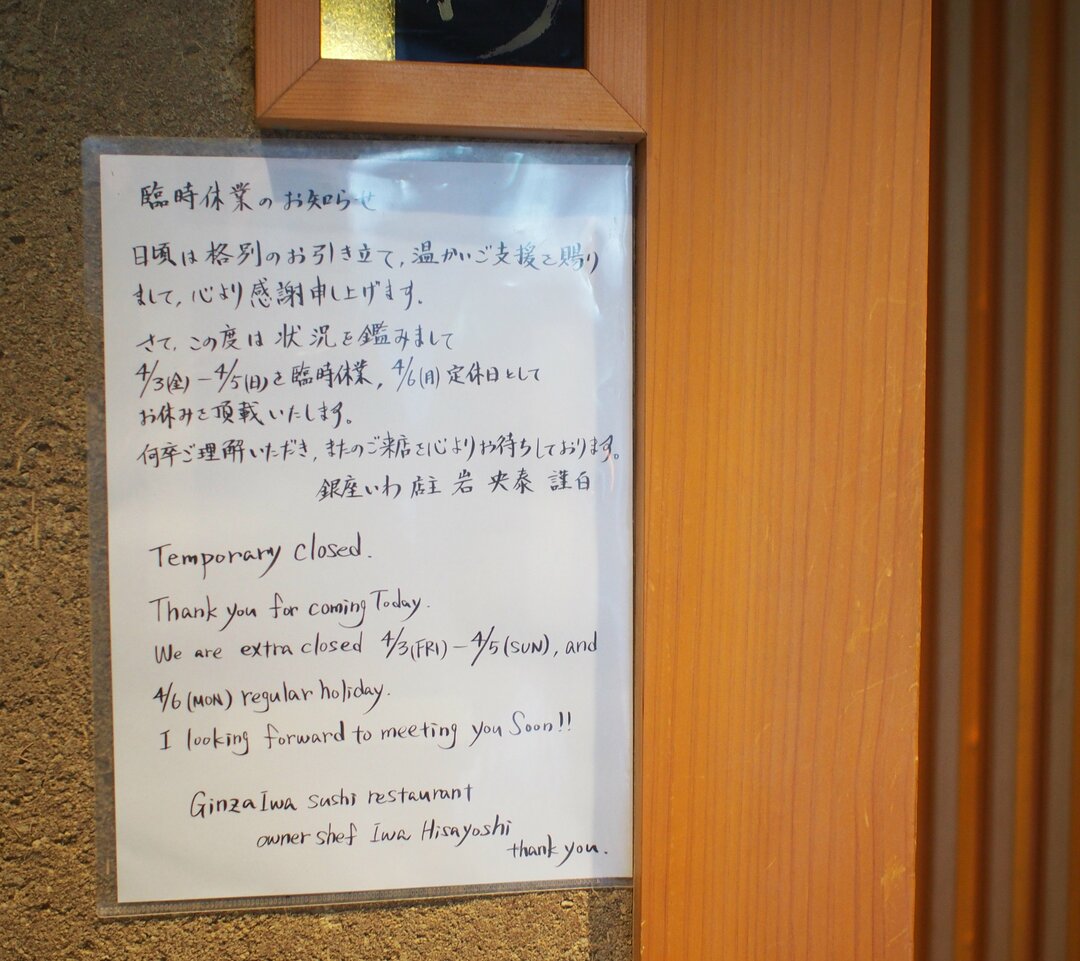 臨時休業のお知らせ
日頃は格別のお引き立て,温かいご支援を賜り
まして,心より感謝申し上げます。
さて,この度は状況を鑑みまして
4/3(金)-4/5(日)を臨時休業,4/6(月)定休日として
お休みを頂載いたします。
何卒ご理解いただき,またのご来店を心よりお待ちしております。
銀座いわ 店主 岩 央泰 謹白
Temporary closed.
Thank you for coming Today.
We are extra closed 4/3(FRI)-4/5(SUN), and
4/6(MON) regular holiday.
I looking forward to meeting you Soon!!
Ginza Iwa sushi restaurant
owner shef Iwa Hisayoshi
thank you.